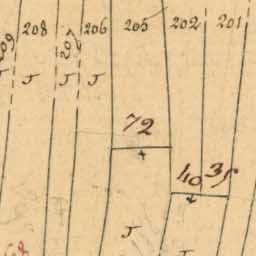 209 208 207 206 205 202 201
J J J J
72
40 35
J
J